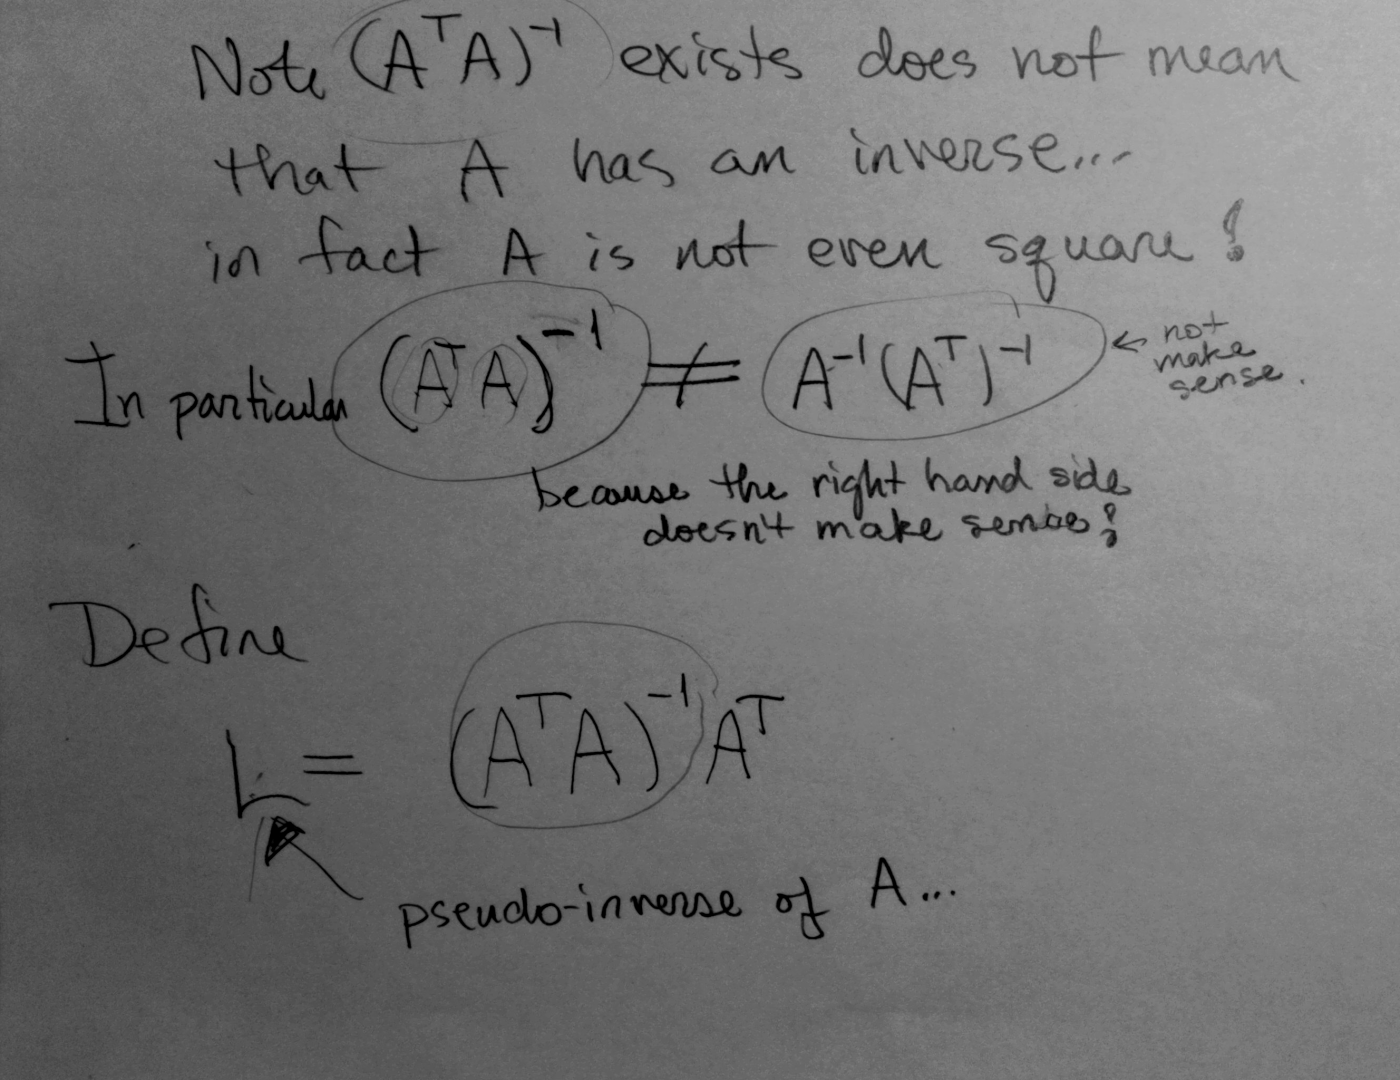 Note (AᵀA)⁻¹ exists does not mean
that A has an inverse...
in fact A is not even square!
In particular (AᵀA)⁻¹ ≠ A⁻¹(Aᵀ)⁻¹ ← not
make
sense.
because the right hand side
doesn't make sense!
Define
L = (AᵀA)⁻¹Aᵀ
pseudo-inverse of A...